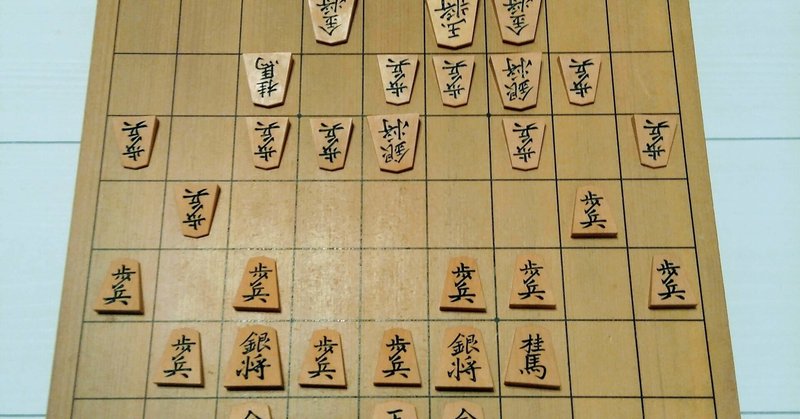 金将 玉将 金将
桂馬 歩兵 歩兵 銀将 歩兵
歩兵 歩兵 歩兵 銀将 歩兵 歩兵
歩兵 歩兵
歩兵 歩兵 歩兵 歩兵 歩兵
歩兵 銀将 歩兵 歩兵 銀将 桂馬